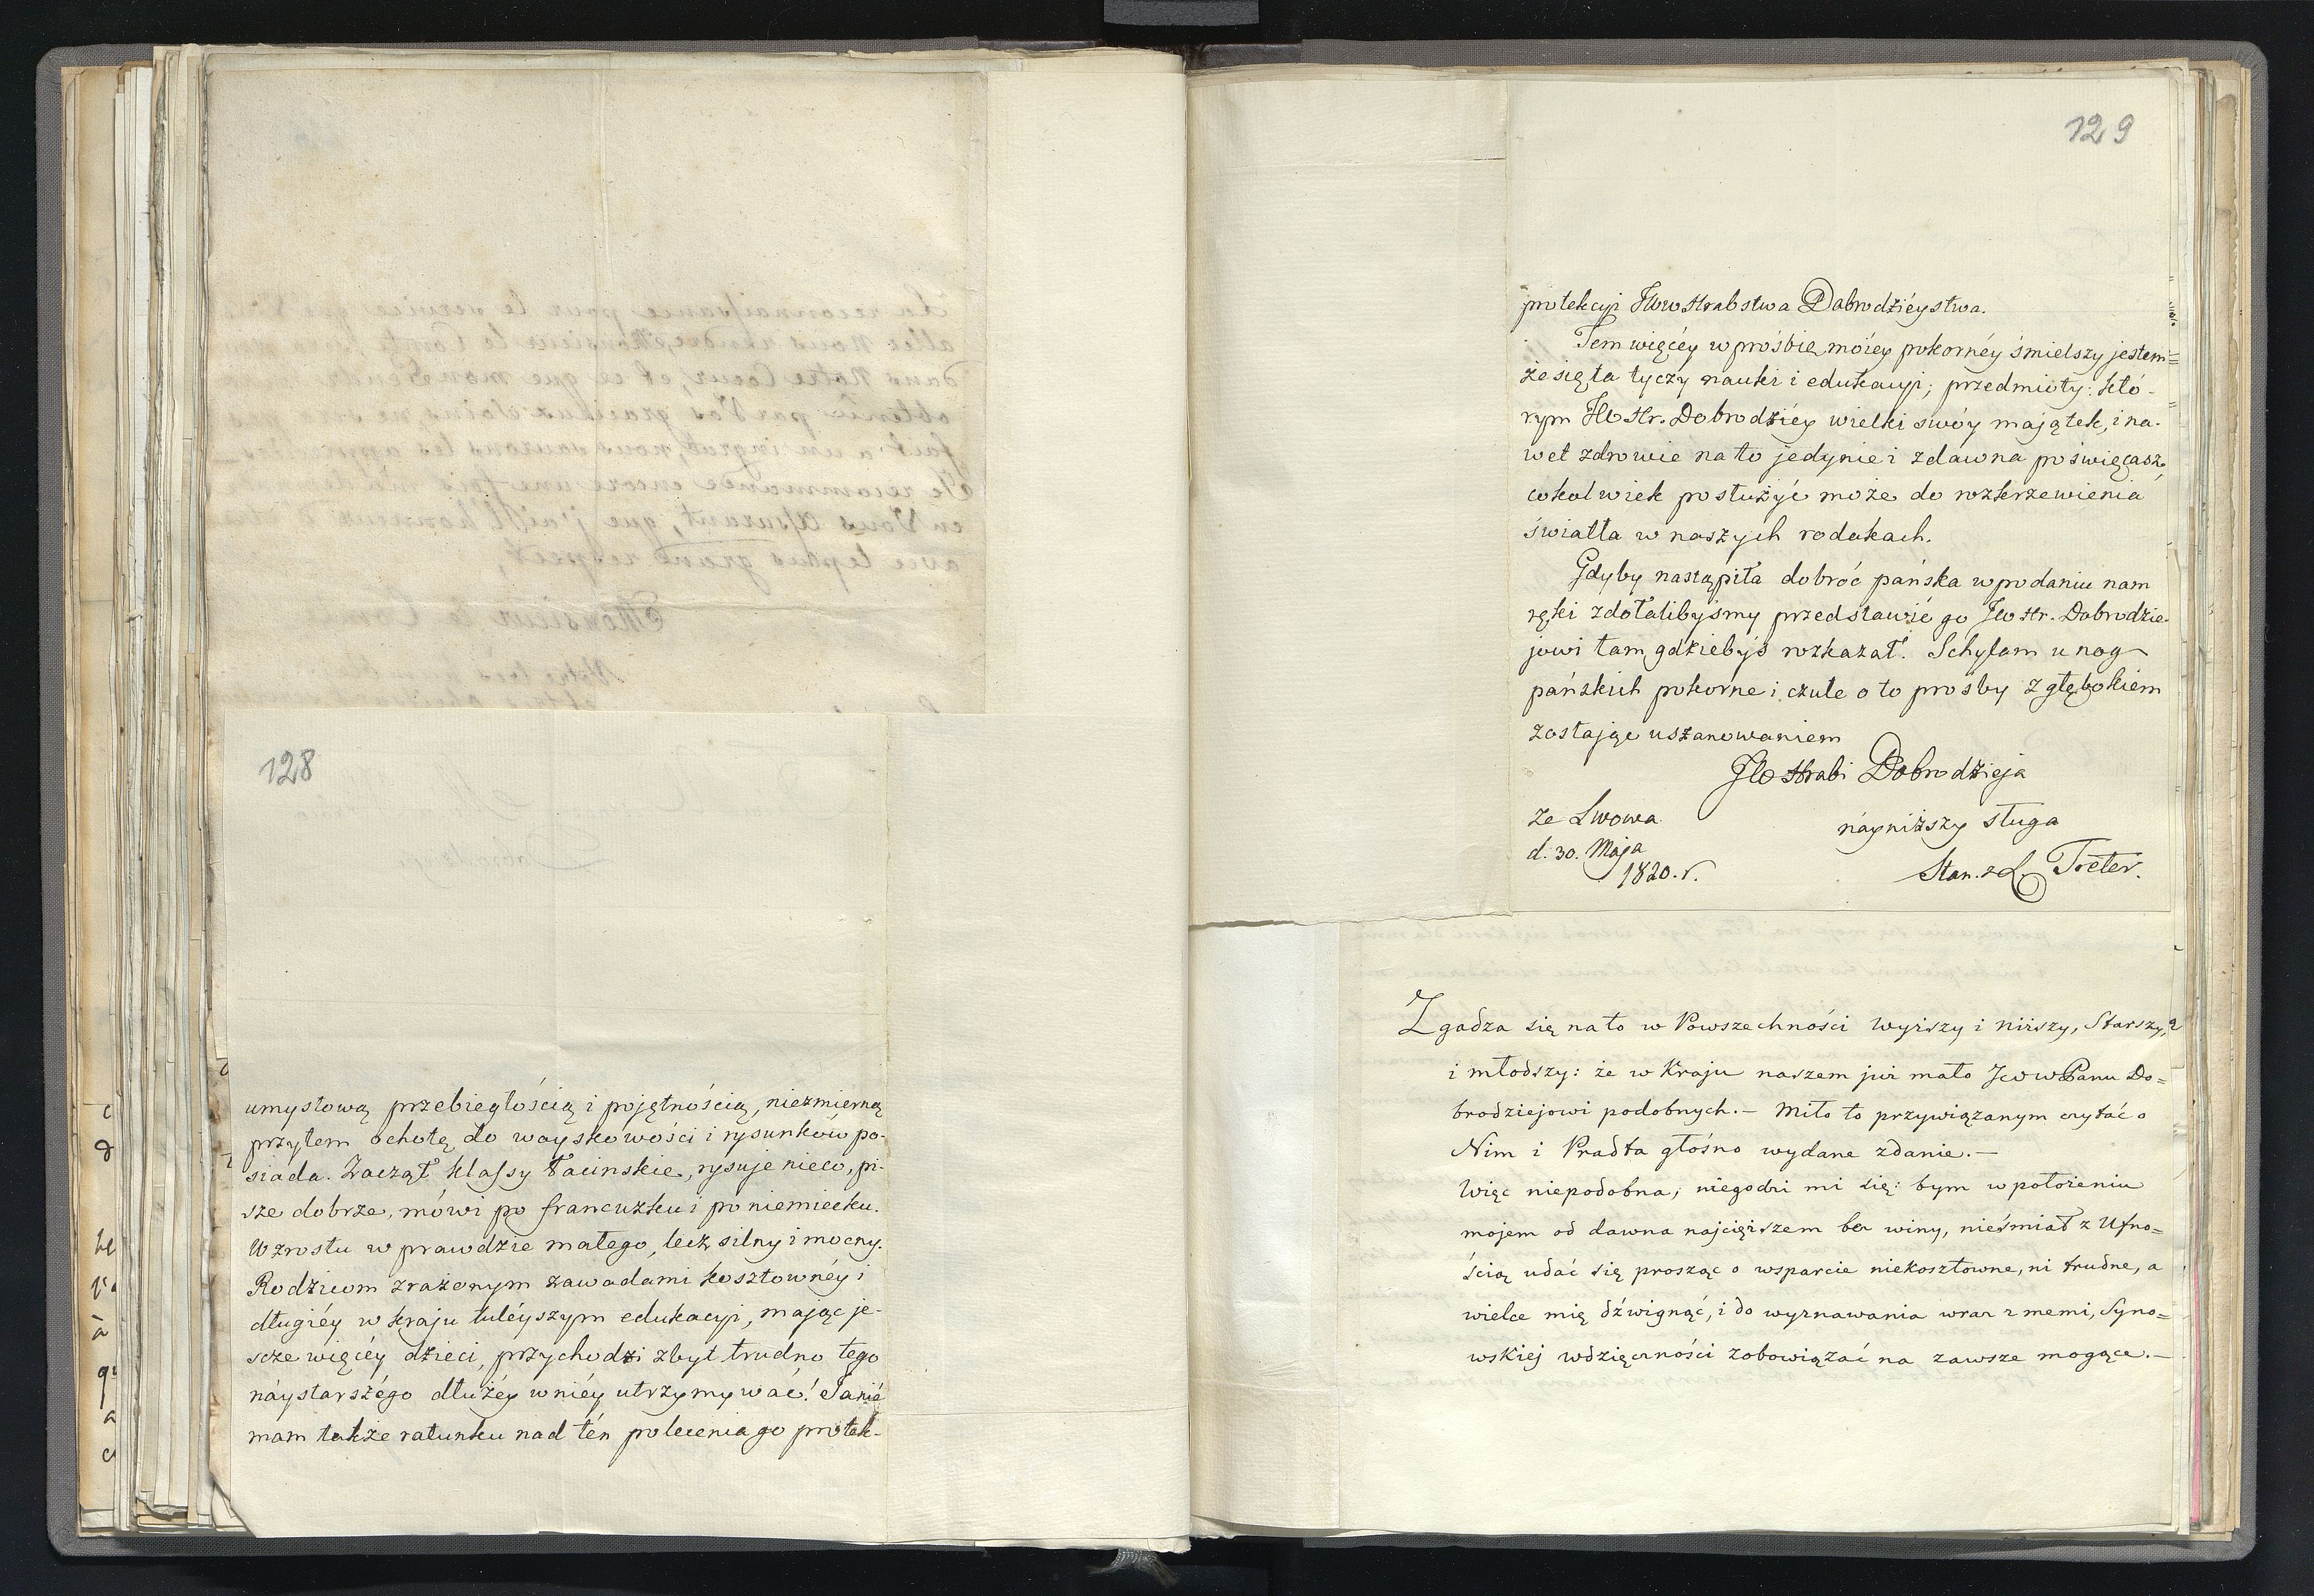 128
umysłową przebiegłością i pojętnością, niezmierną
przytem ochotę do woyskowości i rysunków po-
siada. Zaczął klassy łacinskie, rysuje nieco, pi-
sze dobrze, mówi po francuzku i po niemiecku.
Wzrostu w prawdzie małego, lecz silny i mocny.
Rodzicom zrażonym zawadami kosztownéy i
długiéy w kraju tuléyszym edukacyi, mając je-
scze więcéy dzieci, przychodzi zbyt trudno tego
náystarszégo dłużéy w niéy utrzymywać! Ja nié
mam także ratunku nad tén polecenia go protek-
129
protekcyi JWW Hrabstwa Dobrodziéystwa.
Tem więcéy w prośbie moiey pokornéy śmielszy jestem=
że się ta tyczy nauki i edukacyi; przedmioty: któ-
rym JW Hr. Dobrodziéy wielki swóy majątek, i na-
wet zdrowie na to jedynie i zdawna poświęcasz,
cokolwiek posłużyć może do rozkrzewienia
światła w naszych rodakach.
Gdyby nastąpiła dobroć pańska w podaniu nam
ręki zdołalibyśmy przedstawić go JW Hr. Dobrodzie-
jowi tam gdziebyś rozkazał. Schylam u nog
pańskich pokorne i czułe o to prośby z głębokiem
zostając uszanowaniem
JW Hrabi Dobrodzieja
ze Lwowa
náyniższy sługa
d. 30. Maja
1820. r.
Stan. z L. Treter.
Zgadza się na to w Powszechności wyższy i niższy, Starszy,
i młodszy: że w Kraju naszem już mało JWW Panu Do=
brodziejowi podobnych.— Miło to przywiązanym czytać o
Nim i Pradta głośno wydane zdanie.—
Więc niepodobna; niegodzi mi się: bym w położeniu
mojem od dawna najcięższem bez winy, nieśmiał z Ufno=
ścią udać się prosząc o wsparcie niekosztowne, ni trudne, a
wielce mię dźwignąć, i do wyznawania wraz z memi, Syno=
wskiej wdzięczności zobowiązać na zawsze mogące.—